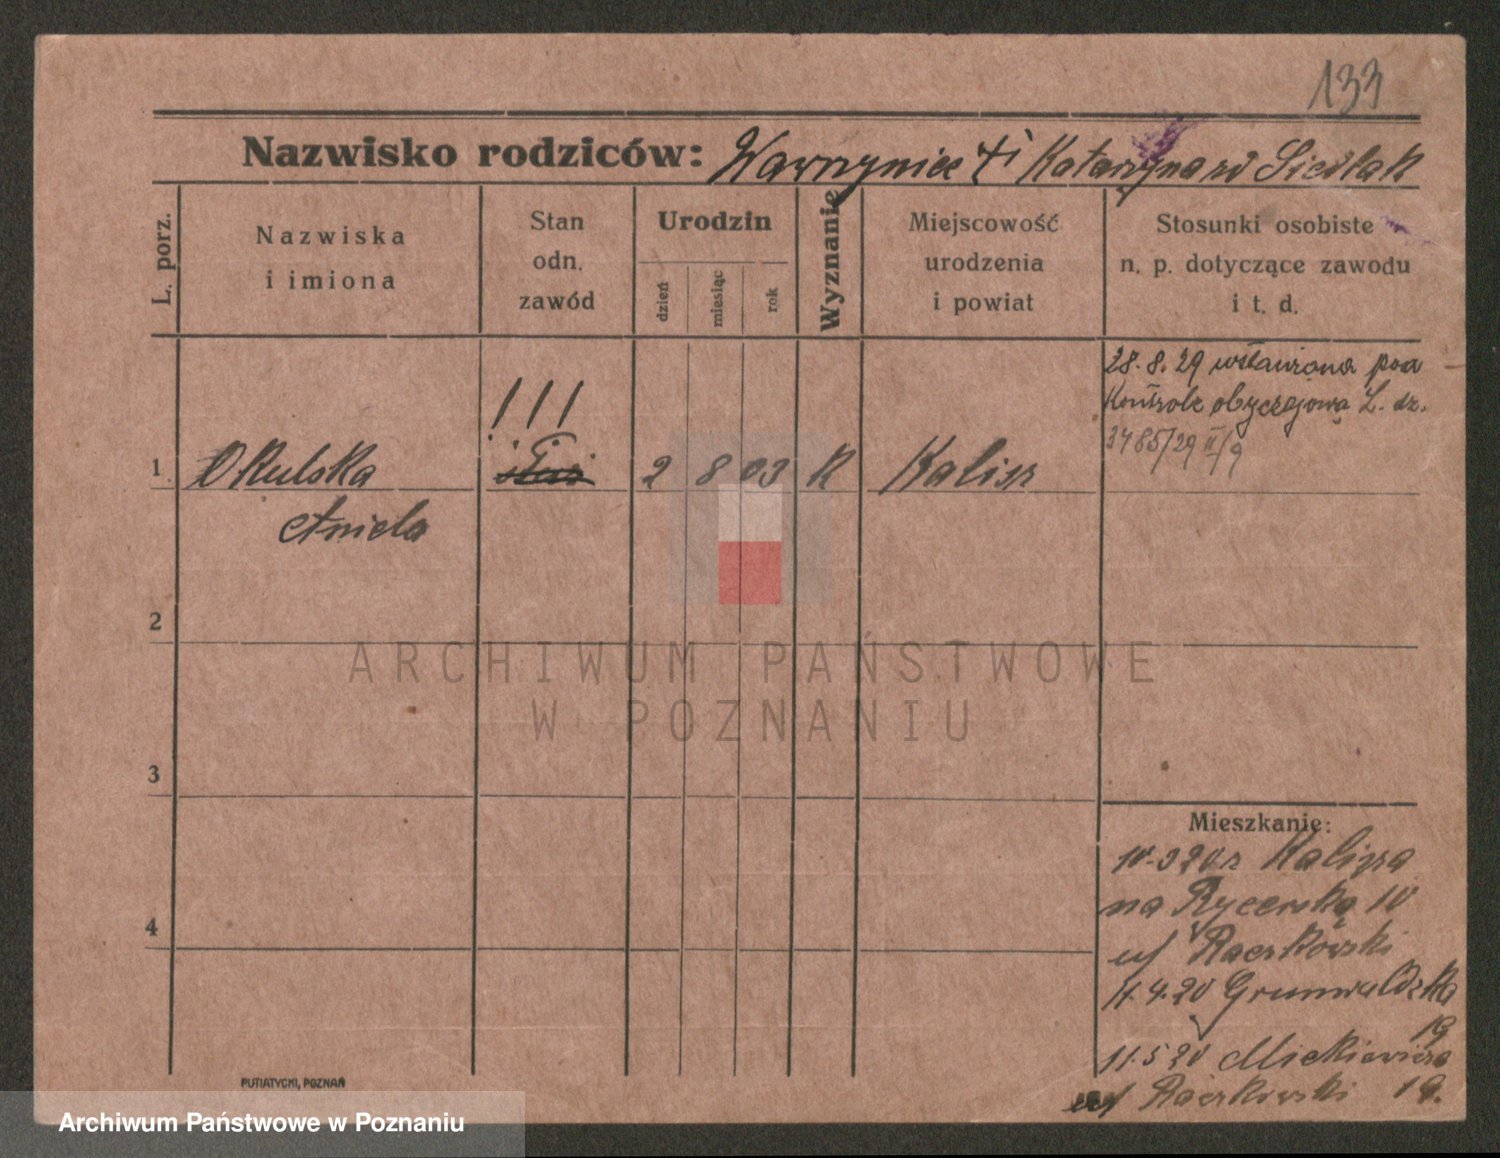 133
Nazwisko rodziców: Wawrzyniec † i Katarzyna zd Siedlak
L. porz.
Nazwiska
i imiona
Stan
odn.
zawód
Urodzin
dzień
miesiąc
rok
Wyznanie
Miejscowość
urodzenia
i powiat
Stosunki osobiste
n. p. dotyczące zawodu
i t. d.
28. 8. 29 wstawiona pod
Kontrole obyczajową L. dz.
3485/29 II/9
!!!
1 Okulska 2 8 03 K Kalisz
Aniela
2
3
4
Mieszkanie:
10.3 20 z Kalisza
na Rycerską 10
u/ Raczkowski
11.4.20 Grunwaldzka
19
11.5 20 Mickiewicza
u/ Raczkowski 19.
PUTIATYCKI, POZNAŃ
ARCHIWUM PAŃSTWOWE
W POZNANIU
Archiwum Państwowe w Poznaniu